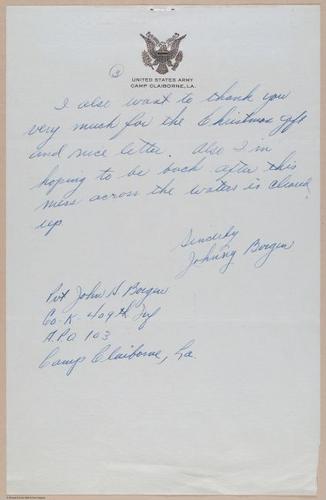 3
UNITED STATES ARMY
CAMP CLAIBORNE, LA.
I also want to thank you
very much for the Christmas gift
and nice letter. Also I'm
hoping to be back after this
mess across the waters is cleared
up
Sincerely
Johnny Bergen
Pvt John H. Bergen
Co. K. 409th Inf
A.P.O 103
Camp Claiborne, La.